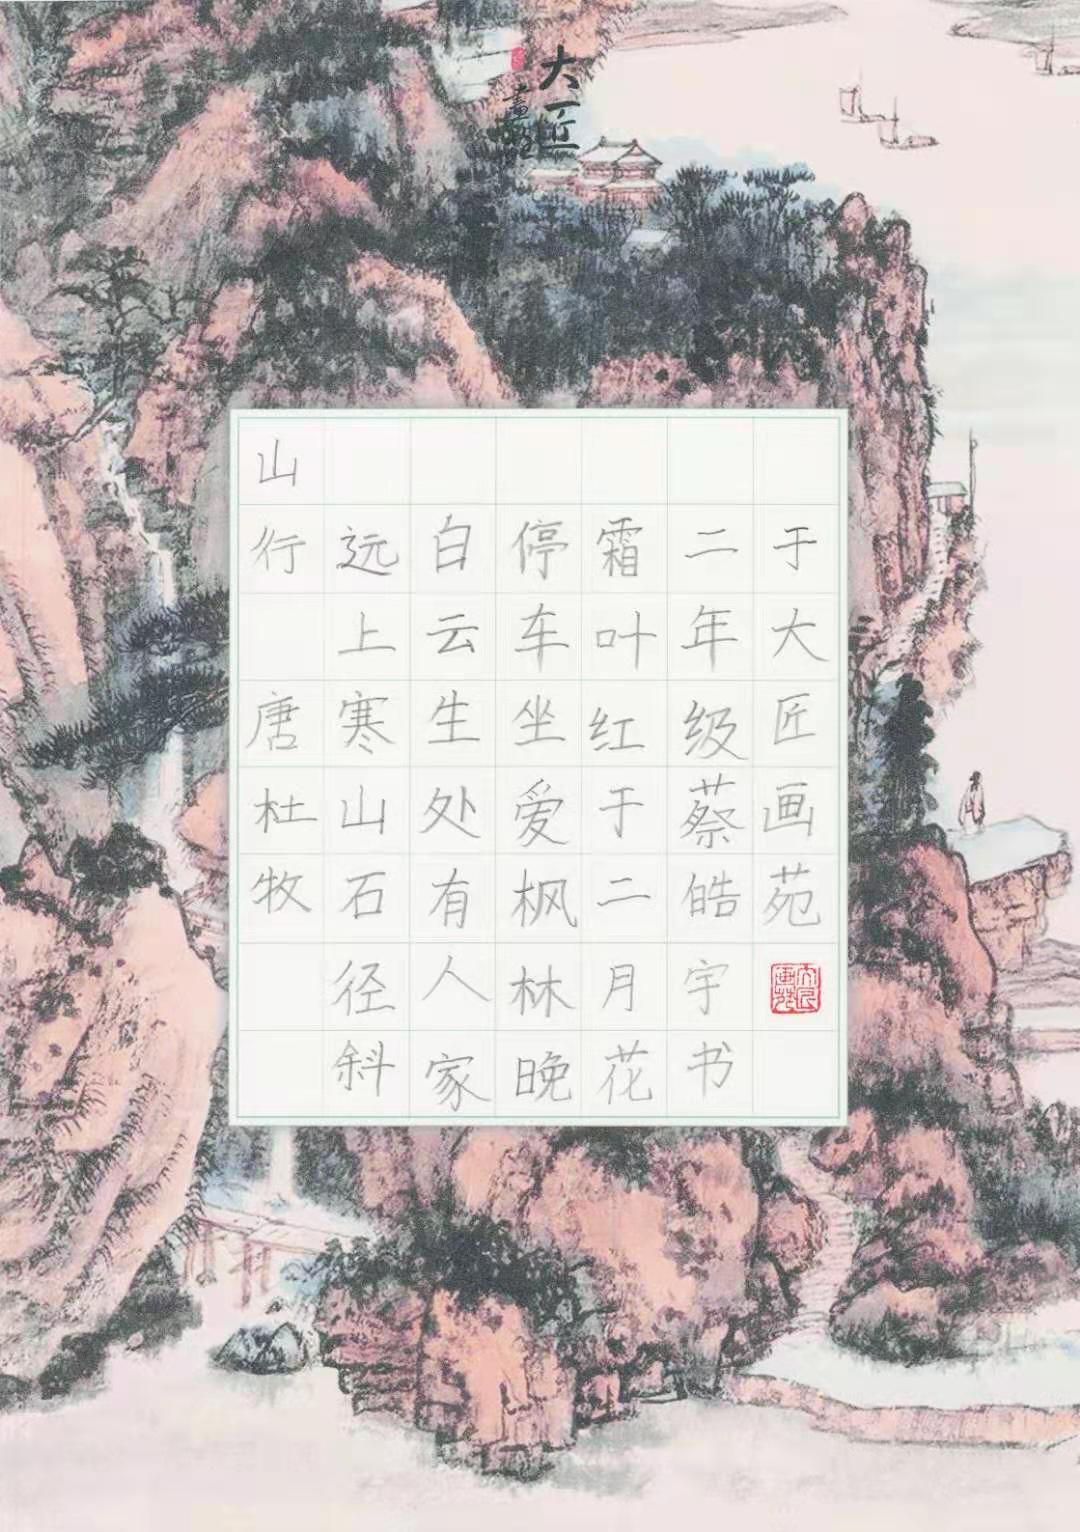 大匠
畫苑
山行 唐杜牧
远上寒山石径斜
白云生处有人家
停车坐爱枫林晚
霜叶红于二月花
二年级蔡皓宇书
于大匠画苑
大匠画苑